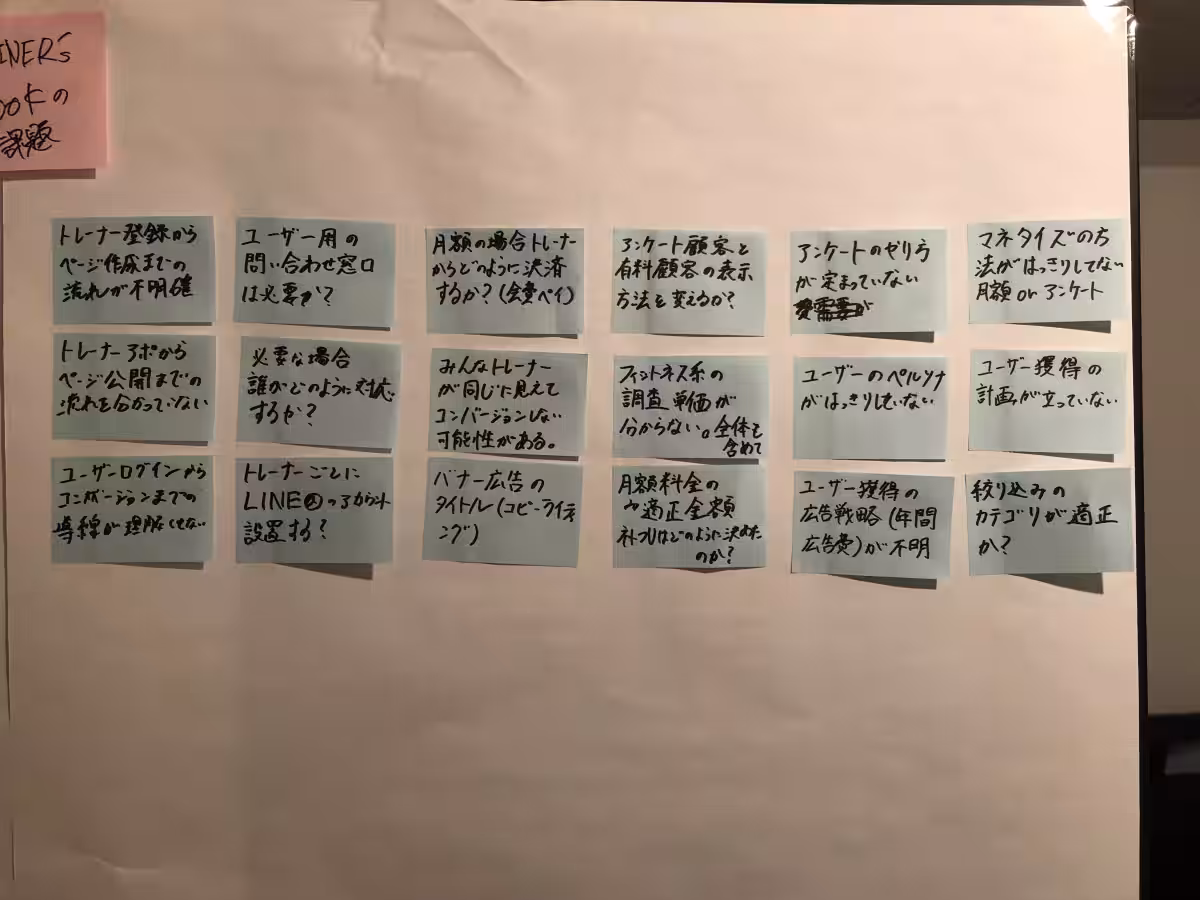 INER'S
OOKの
課題
トレーナー登録から
ページ作成までの
流れが不明確
ユーザー用の
問い合わせ窓口
は必要か?
月額の場合トレーナー
からどのように決済
するか?(会費ペイ)
アンケート顧客と
有料顧客の表示
方法を変えるか?
アンケートのやり方
が定まっていない
マネタイズの方
法がはっきりしてない
月額 or アンケート
トレーナーアポから
ページ公開までの
流れを分かっていない
必要な場合
誰がどのように対応
するか?
みんなトレーナー
が同じに見えて
コンバージョンしない
可能性がある。
フィットネス系の
調査単価が
分からない。全体も
含めて
ユーザーのペルソナ
がはっきりしていない
ユーザー獲得の
計画が立っていない
ユーザーログインから
コンバージョンまでの
導線が理解できない
トレーナーごとに
LINE@のアカウント
設置する?
バナー広告の
タイトル(コピーライティ
ング)
月額料金の
適正金額
はどのように決めた
のか?
ユーザー獲得の
広告戦略(年間
広告費)が不明
絞り込みの
カテゴリが適正
か?